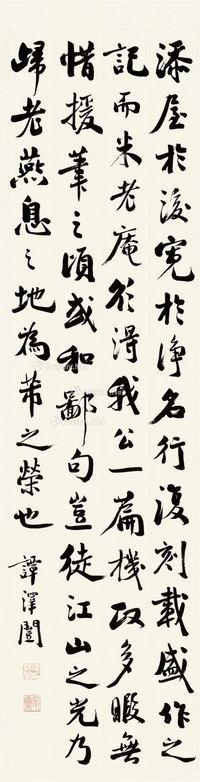 添屋於後寬於淨名行復刻載盛作之
記而米老庵欲得我公一篇機政多暇無
惜援筆之頃或和鄙句豈徒江山之光乃
歸老燕息之地為芾之榮也
譚澤闓